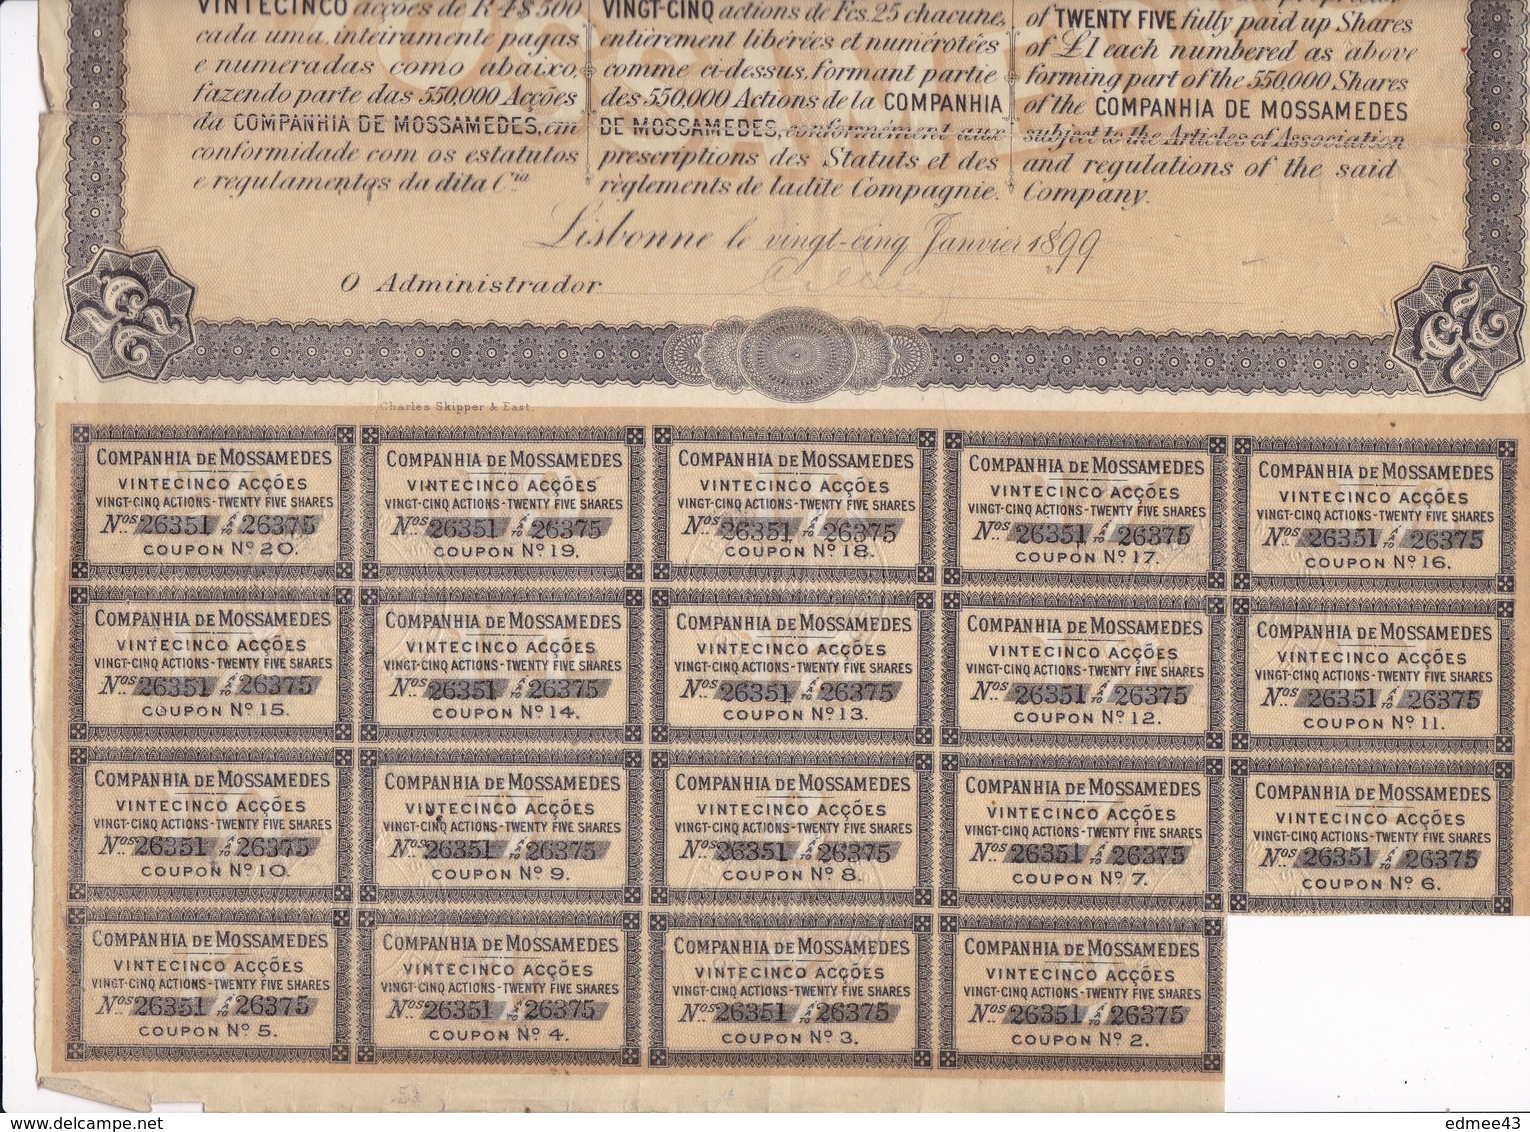 VINTECINCO acções de R 4$500
cada uma, inteiramente pagas
e numeradas como abaixo,
fazendo parte das 550,000 Acções
da COMPANHIA DE MOSSAMEDES, em
conformidade com os estatutos
e regulamentos da dita Cia
VINGT-CINQ actions de Fcs. 25 chacune,
entièrement libérées et numérotées
comme ci-dessus, formant partie
des 550,000 Actions de la COMPANHIA
DE MOSSAMEDES, conformément aux
prescriptions des Statuts et des
règlements de ladite Compagnie.
of TWENTY FIVE fully paid up Shares
of £1 each numbered as above
forming part of the 550,000 Shares
of the COMPANHIA DE MOSSAMEDES
subject to the Articles of Association
and regulations of the said
Company.
Lisbonne le vingt-cinq Janvier 1899
O Administrador
Charles Skipper & East.
COMPANHIA DE MOSSAMEDES
VINTECINCO ACÇÕES
VINGT-CINQ ACTIONS-TWENTY FIVE SHARES
Nos 26351 À/TO 26375
COUPON No 20.
COMPANHIA DE MOSSAMEDES
VINTECINCO ACÇÕES
VINGT-CINQ ACTIONS-TWENTY FIVE SHARES
Nos 26351 À/TO 26375
COUPON No 19.
COMPANHIA DE MOSSAMEDES
VINTECINCO ACÇÕES
VINGT-CINQ ACTIONS-TWENTY FIVE SHARES
Nos 26351 À/TO 26375
COUPON No 18.
COMPANHIA DE MOSSAMEDES
VINTECINCO ACÇÕES
VINGT-CINQ ACTIONS-TWENTY FIVE SHARES
Nos 26351 À/TO 26375
COUPON No 17.
COMPANHIA DE MOSSAMEDES
VINTECINCO ACÇÕES
VINGT-CINQ ACTIONS-TWENTY FIVE SHARES
Nos 26351 À/TO 26375
COUPON No 16.
COMPANHIA DE MOSSAMEDES
VINTECINCO ACÇÕES
VINGT-CINQ ACTIONS-TWENTY FIVE SHARES
Nos 26351 À/TO 26375
COUPON No 15.
COMPANHIA DE MOSSAMEDES
VINTECINCO ACÇÕES
VINGT-CINQ ACTIONS-TWENTY FIVE SHARES
Nos 26351 À/TO 26375
COUPON No 14.
COMPANHIA DE MOSSAMEDES
VINTECINCO ACÇÕES
VINGT-CINQ ACTIONS-TWENTY FIVE SHARES
Nos 26351 À/TO 26375
COUPON No 13.
COMPANHIA DE MOSSAMEDES
VINTECINCO ACÇÕES
VINGT-CINQ ACTIONS-TWENTY FIVE SHARES
Nos 26351 À/TO 26375
COUPON No 12.
COMPANHIA DE MOSSAMEDES
VINTECINCO ACÇÕES
VINGT-CINQ ACTIONS-TWENTY FIVE SHARES
Nos 26351 À/TO 26375
COUPON No 11.
COMPANHIA DE MOSSAMEDES
VINTECINCO ACÇÕES
VINGT-CINQ ACTIONS-TWENTY FIVE SHARES
Nos 26351 À/TO 26375
COUPON No 10.
COMPANHIA DE MOSSAMEDES
VINTECINCO ACÇÕES
VINGT-CINQ ACTIONS-TWENTY FIVE SHARES
Nos 26351 À/TO 26375
COUPON No 9.
COMPANHIA DE MOSSAMEDES
VINTECINCO ACÇÕES
VINGT-CINQ ACTIONS-TWENTY FIVE SHARES
Nos 26351 À/TO 26375
COUPON No 8.
COMPANHIA DE MOSSAMEDES
VINTECINCO ACÇÕES
VINGT-CINQ ACTIONS-TWENTY FIVE SHARES
Nos 26351 À/TO 26375
COUPON No 7.
COMPANHIA DE MOSSAMEDES
VINTECINCO ACÇÕES
VINGT-CINQ ACTIONS-TWENTY FIVE SHARES
Nos 26351 À/TO 26375
COUPON No 6.
COMPANHIA DE MOSSAMEDES
VINTECINCO ACÇÕES
VINGT-CINQ ACTIONS-TWENTY FIVE SHARES
Nos 26351 À/TO 26375
COUPON No 5.
COMPANHIA DE MOSSAMEDES
VINTECINCO ACÇÕES
VINGT-CINQ ACTIONS-TWENTY FIVE SHARES
Nos 26351 À/TO 26375
COUPON No 4.
COMPANHIA DE MOSSAMEDES
VINTECINCO ACÇÕES
VINGT-CINQ ACTIONS-TWENTY FIVE SHARES
Nos 26351 À/TO 26375
COUPON No 3.
COMPANHIA DE MOSSAMEDES
VINTECINCO ACÇÕES
VINGT-CINQ ACTIONS-TWENTY FIVE SHARES
Nos 26351 À/TO 26375
COUPON No 2.
edmee43